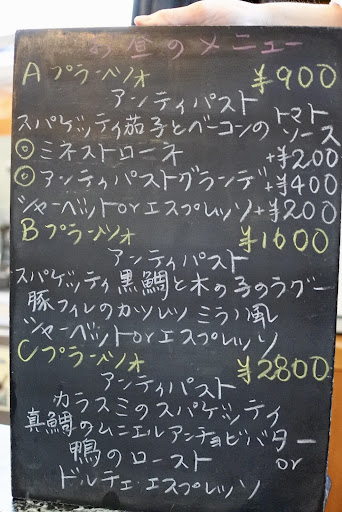 お昼のメニュー
A プランゾォ ¥900
アンティパスト
スパゲッティ茄子とベーコンのトマトソース
◎ミネストローネ +¥200
◎アンティパストグランデ +¥400
シャーベットorエスプレッソ +¥200
B プランゾォ ¥1600
アンティパスト
スパゲッティ黒鯛と木の子のラグー
豚フィレのカツレツ ミラノ風
シャーベットorエスプレッソ
C プランゾォ ¥2800
アンティパスト
カラスミのスパゲッティ
真鯛のムニエルアンチョビバター
鴨のロースト or
ドルチェ・エスプレッソ